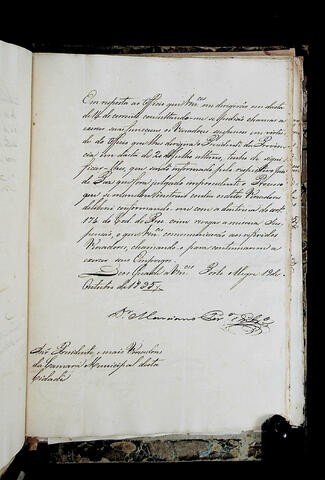 Em resposta ao Officio que Vm.ces me dirigirão em data
de 16 do corrente consultando-me se podião chamar a
exercer suas funcçoens os Vereadores suspensos em virtu-
de do Officio que lhes dirigio o Presidente da Provin-
cia, em data de de Julho ultimo, tenho de signi-
ficar-lhes, que sendo informado pelo respectivo Juiz
de Paz que fora julgado improcedente o Processo
que se intentou contra os ditos Vereadores
delibero conformando-me com a doutrina do art.
176 do Cod. do Pro. con. vogar a mesma Sus-
pensão, o que Vm.ces communicarão aos referidos
Vereadores, chamando-os para continuarem a
exercer seus Empregos.
Deos Guarde a Vm.ces Porto Alegre 18 de
Outubro de 1835
D.r Marciano Per.a
Snr.es Presidente, e mais Vereadores
da Camara Municipal desta
Cidade